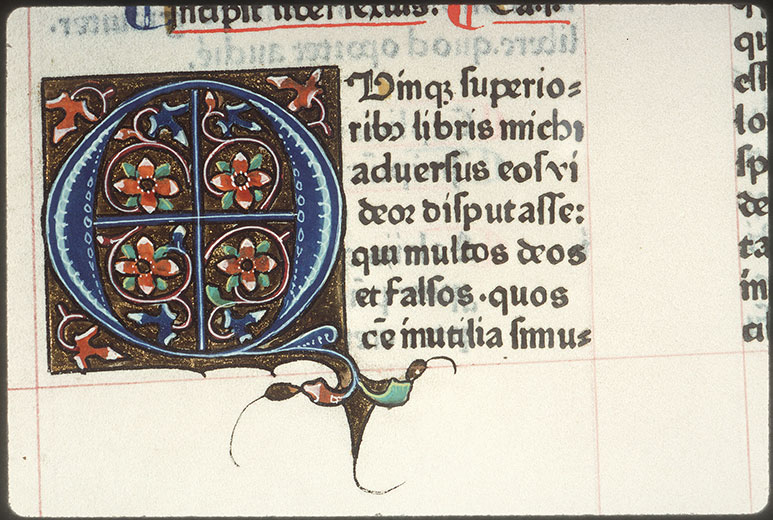 Incipit liber sextus. Ca. i.
QUinqꝫ superio⸗
ribꝰ libris michi
aduersus eos vi
deor disputasse:
qui multos deos
et falsos. quos
eē inutilia simu⸗
qu
ess
lo
sp
de
ta
in